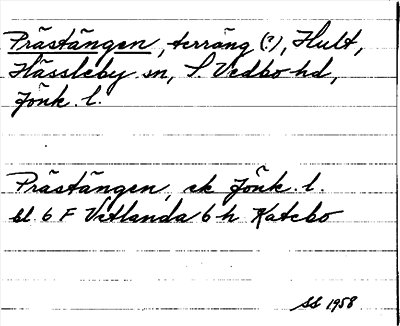 Prästängen, terräng (?), Hult,
Hässleby sn, S. Vedbo hd,
Jönk. l.
Prästängen, ek Jönk. l.
bl. 6 F Vetlanda 6 h Katebo
SS 1958